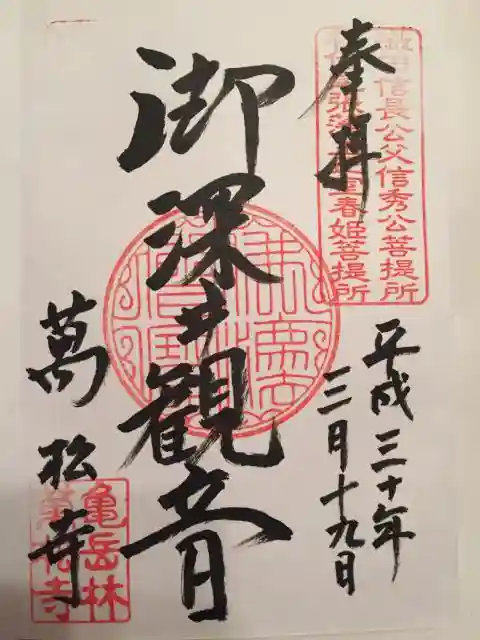 奉拝
織田信長公父信秀公菩提所
尾張藩
春姫菩提所
平成三十年
三月十九日
御深井観音
萬松寺
亀岳林
萬松寺